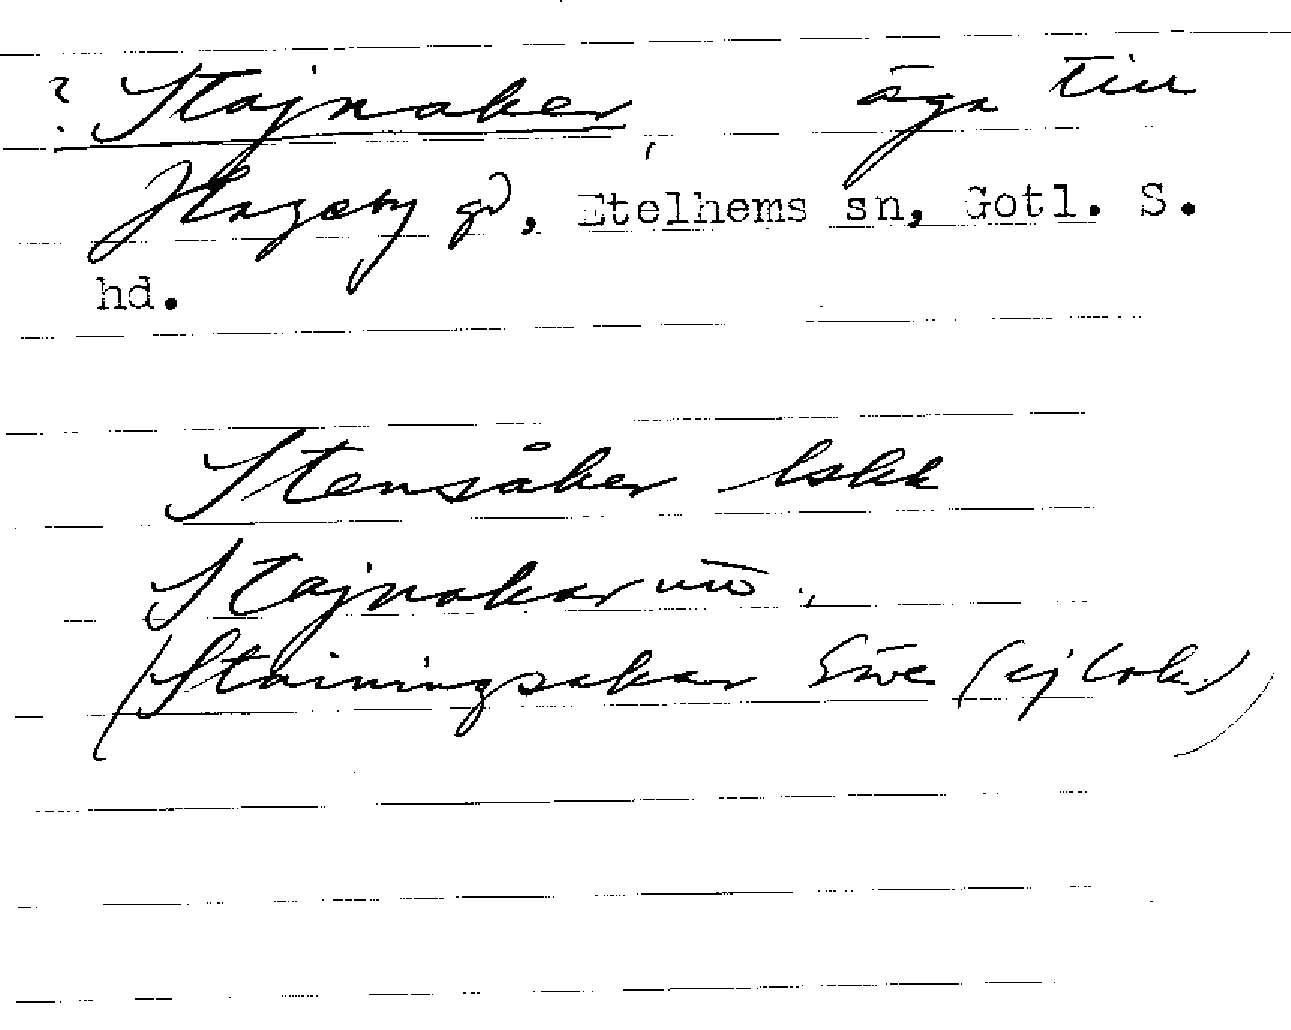 ? Stajnaker äga till
Hageby gd, Etelhems sn, Gotl. S.
hd.
Stensåker lskk
Stajnakar
(Stainingsakar Säve (ej lok.)